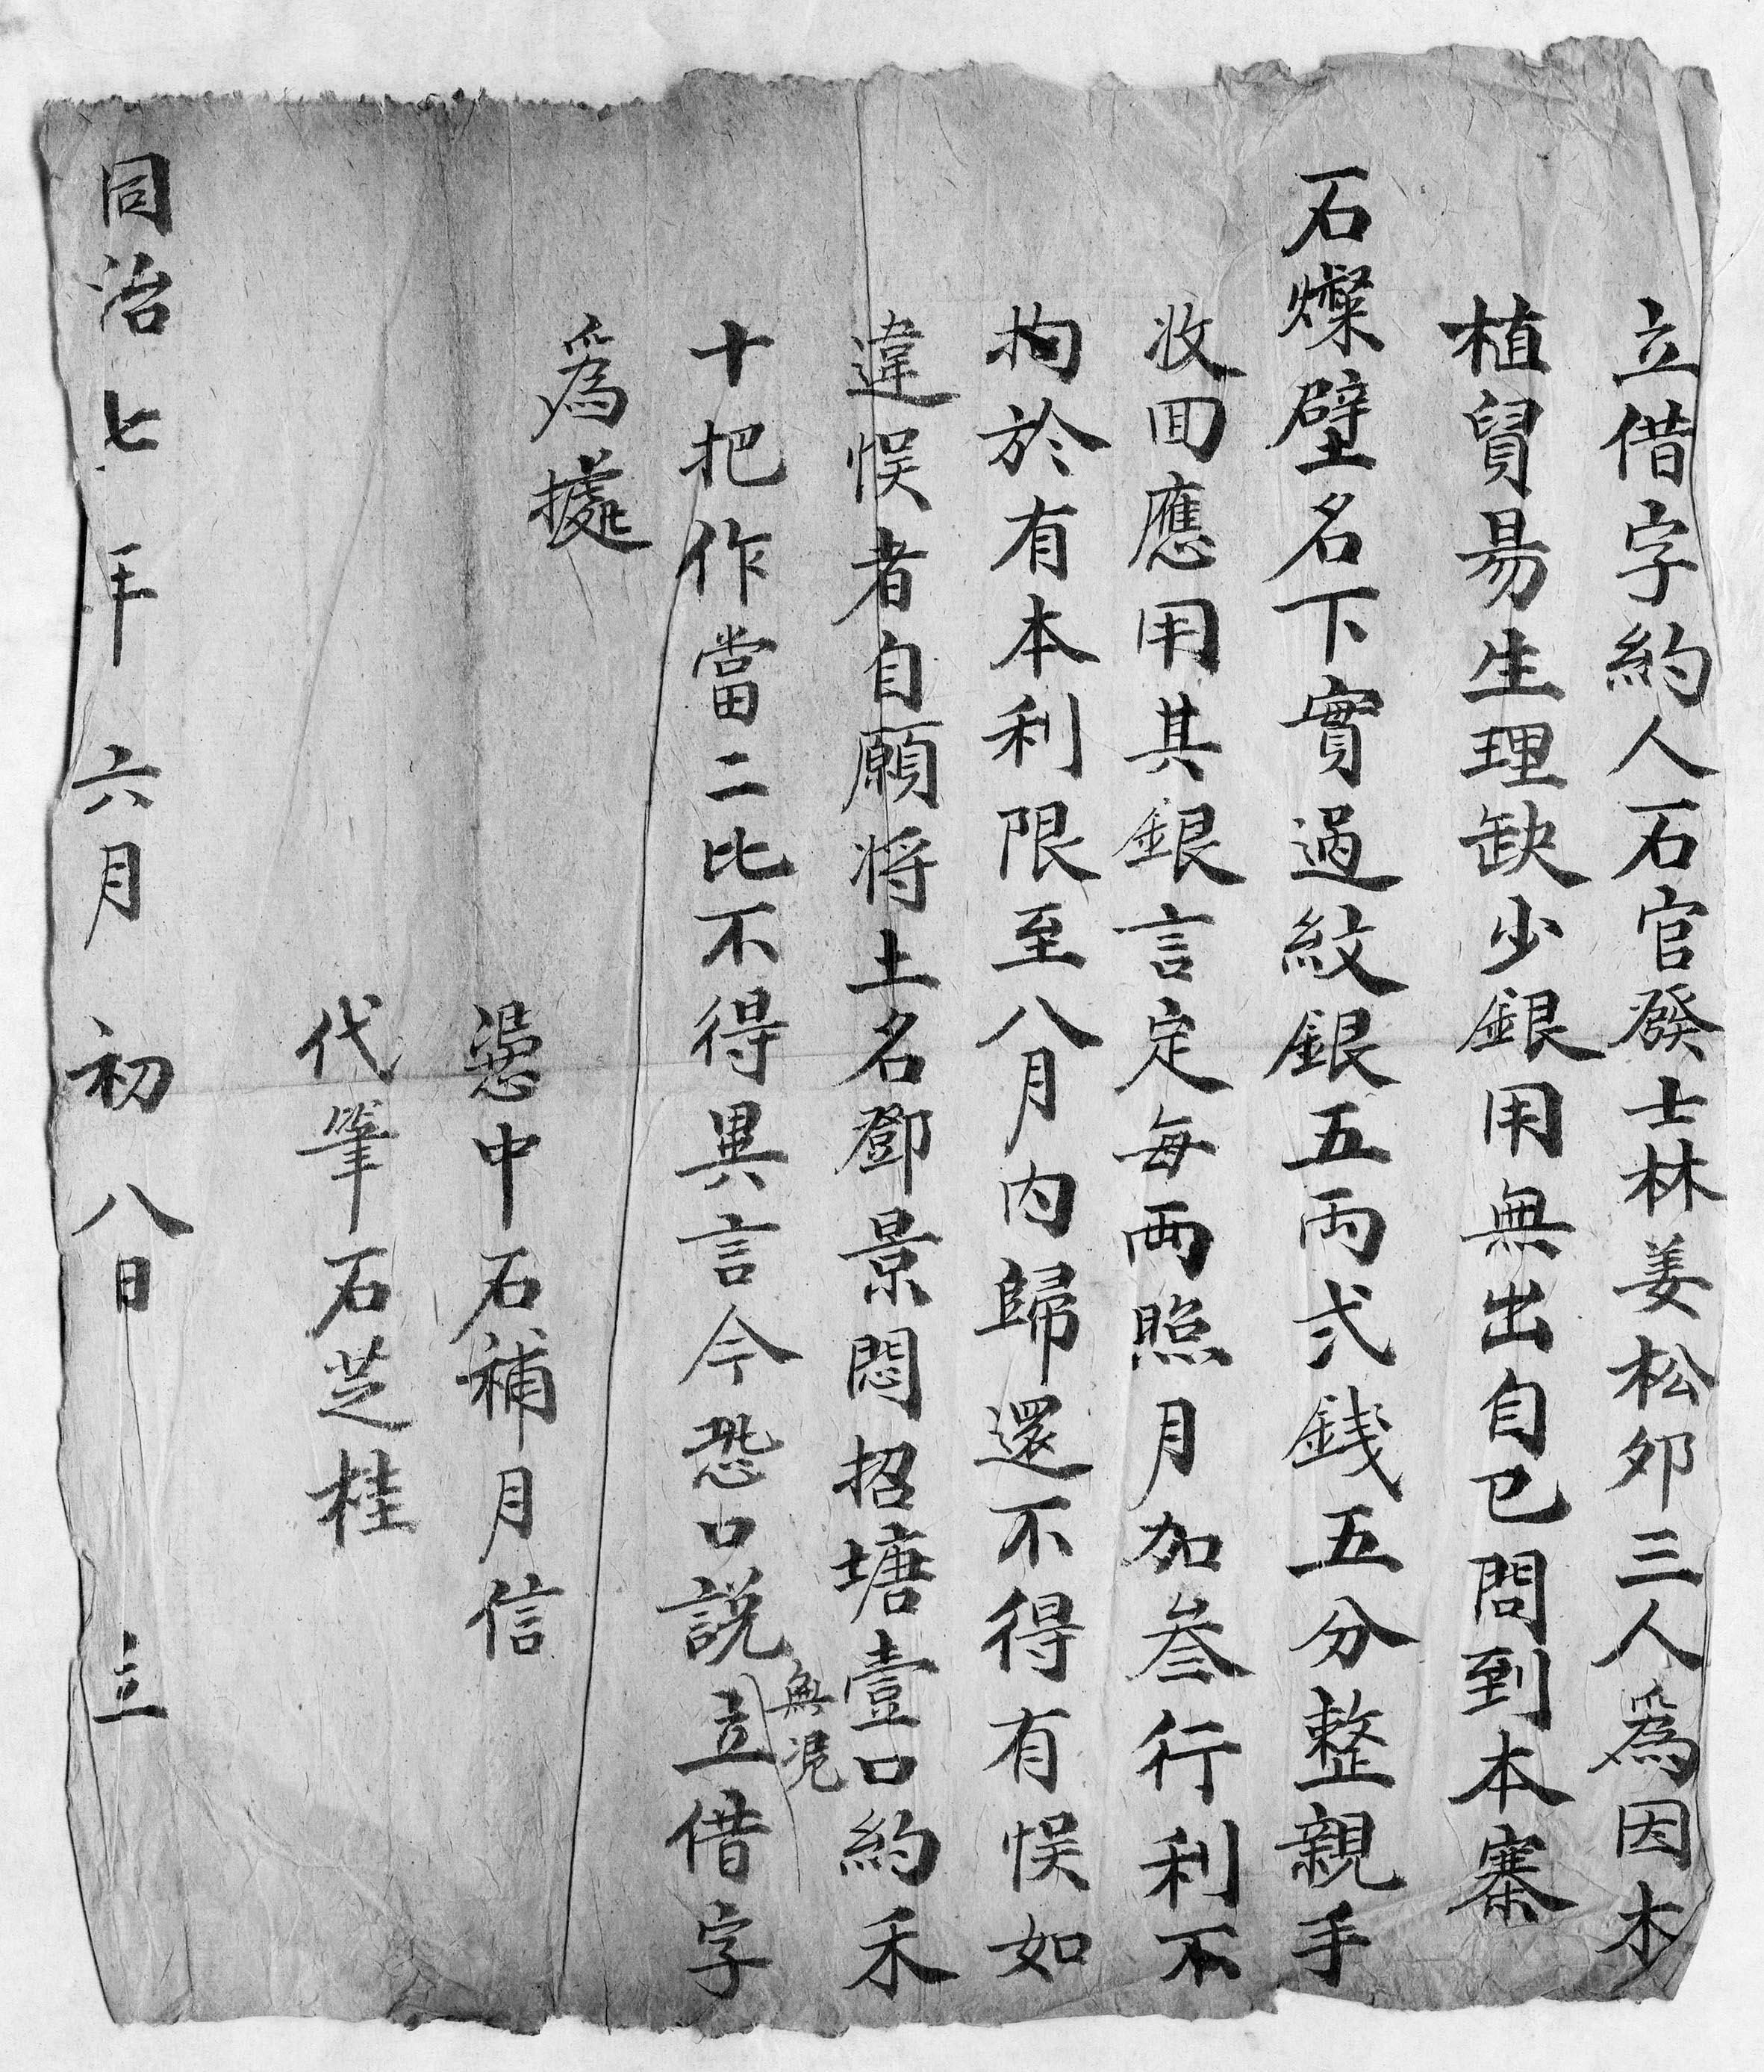 立借字約人石官發士林姜松夘三人爲因木
植貿昜生理缺少銀用無出自己問到本寨
石燦壁名下實過紋銀五両弍錢五分整親手
收囬應用其銀言定每両照月加叁行利不
拘於有本利限至八月内歸還不得有悮如
違悮者自願将土名鄧景悶招塘壹口約禾
十把作當二比不得異言今恐口説無凴立借字
爲據
憑中石補月信
代筆石芝桂
同治七年六月初八日立